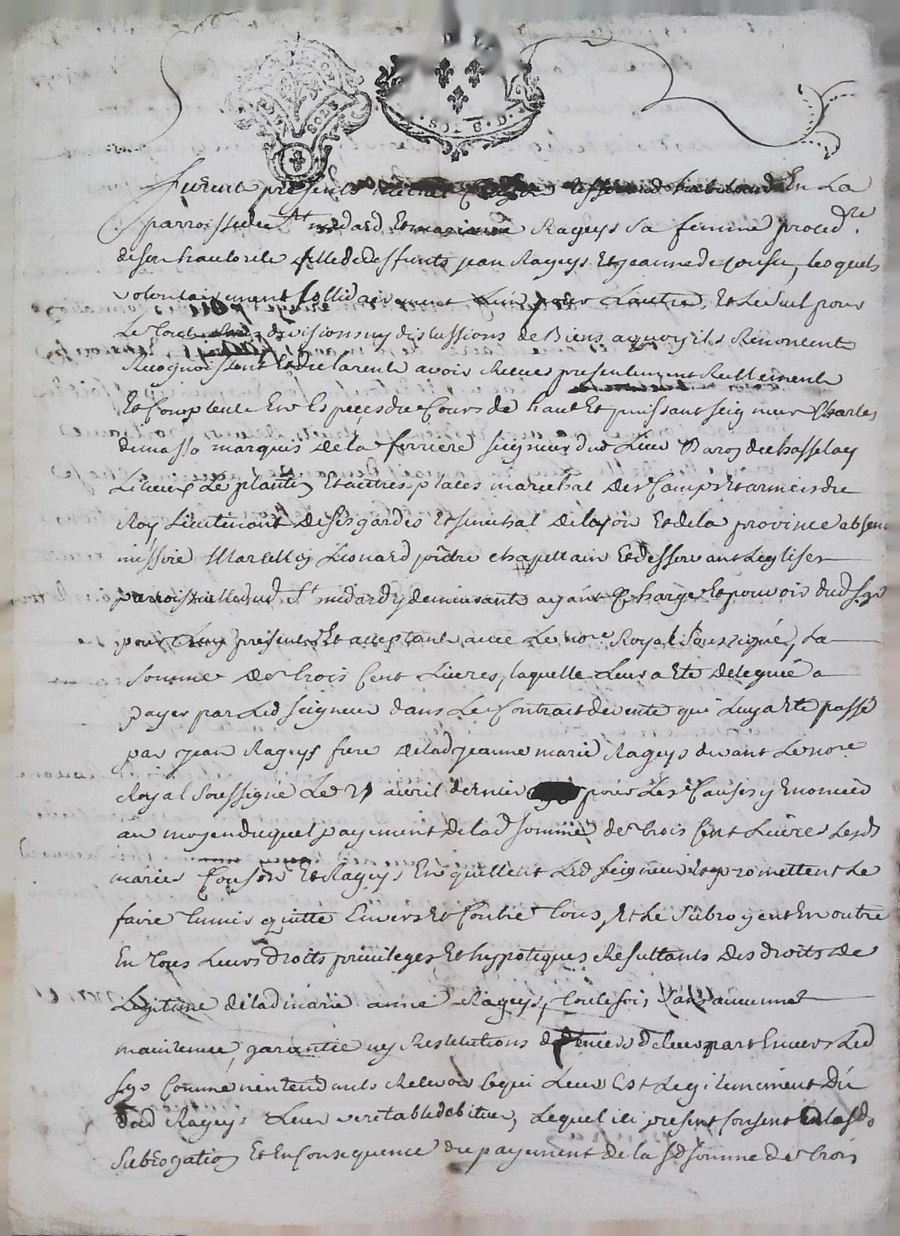 SOLS
· SOLS · D ·
furent présents En La
parroisse de St medard Et Rageys Sa femme proced.te
de son hautorité fille de deffunts jean Rageys Et jeanne de lesquels
volontairement sollidairement L'un pour Lautre, Et Le seul pour
Le tout sans division ny discussions de Biens aquoy ils Renoncent
Recognoissent Et declarent avoir Receu presentement Reellement
Et Comptent En Espeçes du Cours de haut Et puissant seigneur Charles
de masso marquis de la ferriere seigneur dud Lieu Baron du hasselay
Lissieu Le plantin Et autres places marechal des Camps Et armées du
Roy Lieutenant de ses gardes Et senechal de Lyon Et de la province absent
messire Marcellin Leonard chapellain Et desservant Leglise
parroissielle dud St medard y demeurante ayant Charge Et pouvoir dud sgr
pour present Et acceptant avec Le no.re Royal Soussigné, La
somme de trois Cent Livres, laquelle Leur a Eté deleguée a
payer par Led seigneur dans Le Contrat de vente qui Luy a Eté passé
par jean Rageys frere de lad jeanne marie Rageys devant Le no.re
Royal Soussigné Le 21 avril dernier pour Les Causes y Enoncées
au moyen duquel payement de lad somme de trois Cent Livres Lesds
mariés Couson Et Rageys En quittent Led seigneur Et promettent Le
faire tenir quitte Envers Et Contre tous, Et Le Subrogent En outre
En tous Leurs droits privileges Et hypoteques Resultants des droits de
Legitime de lad marie anne Rageys, toutefois sans aucune
maintenue, garantie ny Restitutions de deniers de leur part Envers Led
sgr Comme n'entendants Recevoir que ce qui Leur Est Legitimement Dû
dud Rageys Leur veritable debiteur, Lequel ici present Consent a la sd
Subrogation Et En Consequence du payement de la sd somme de trois